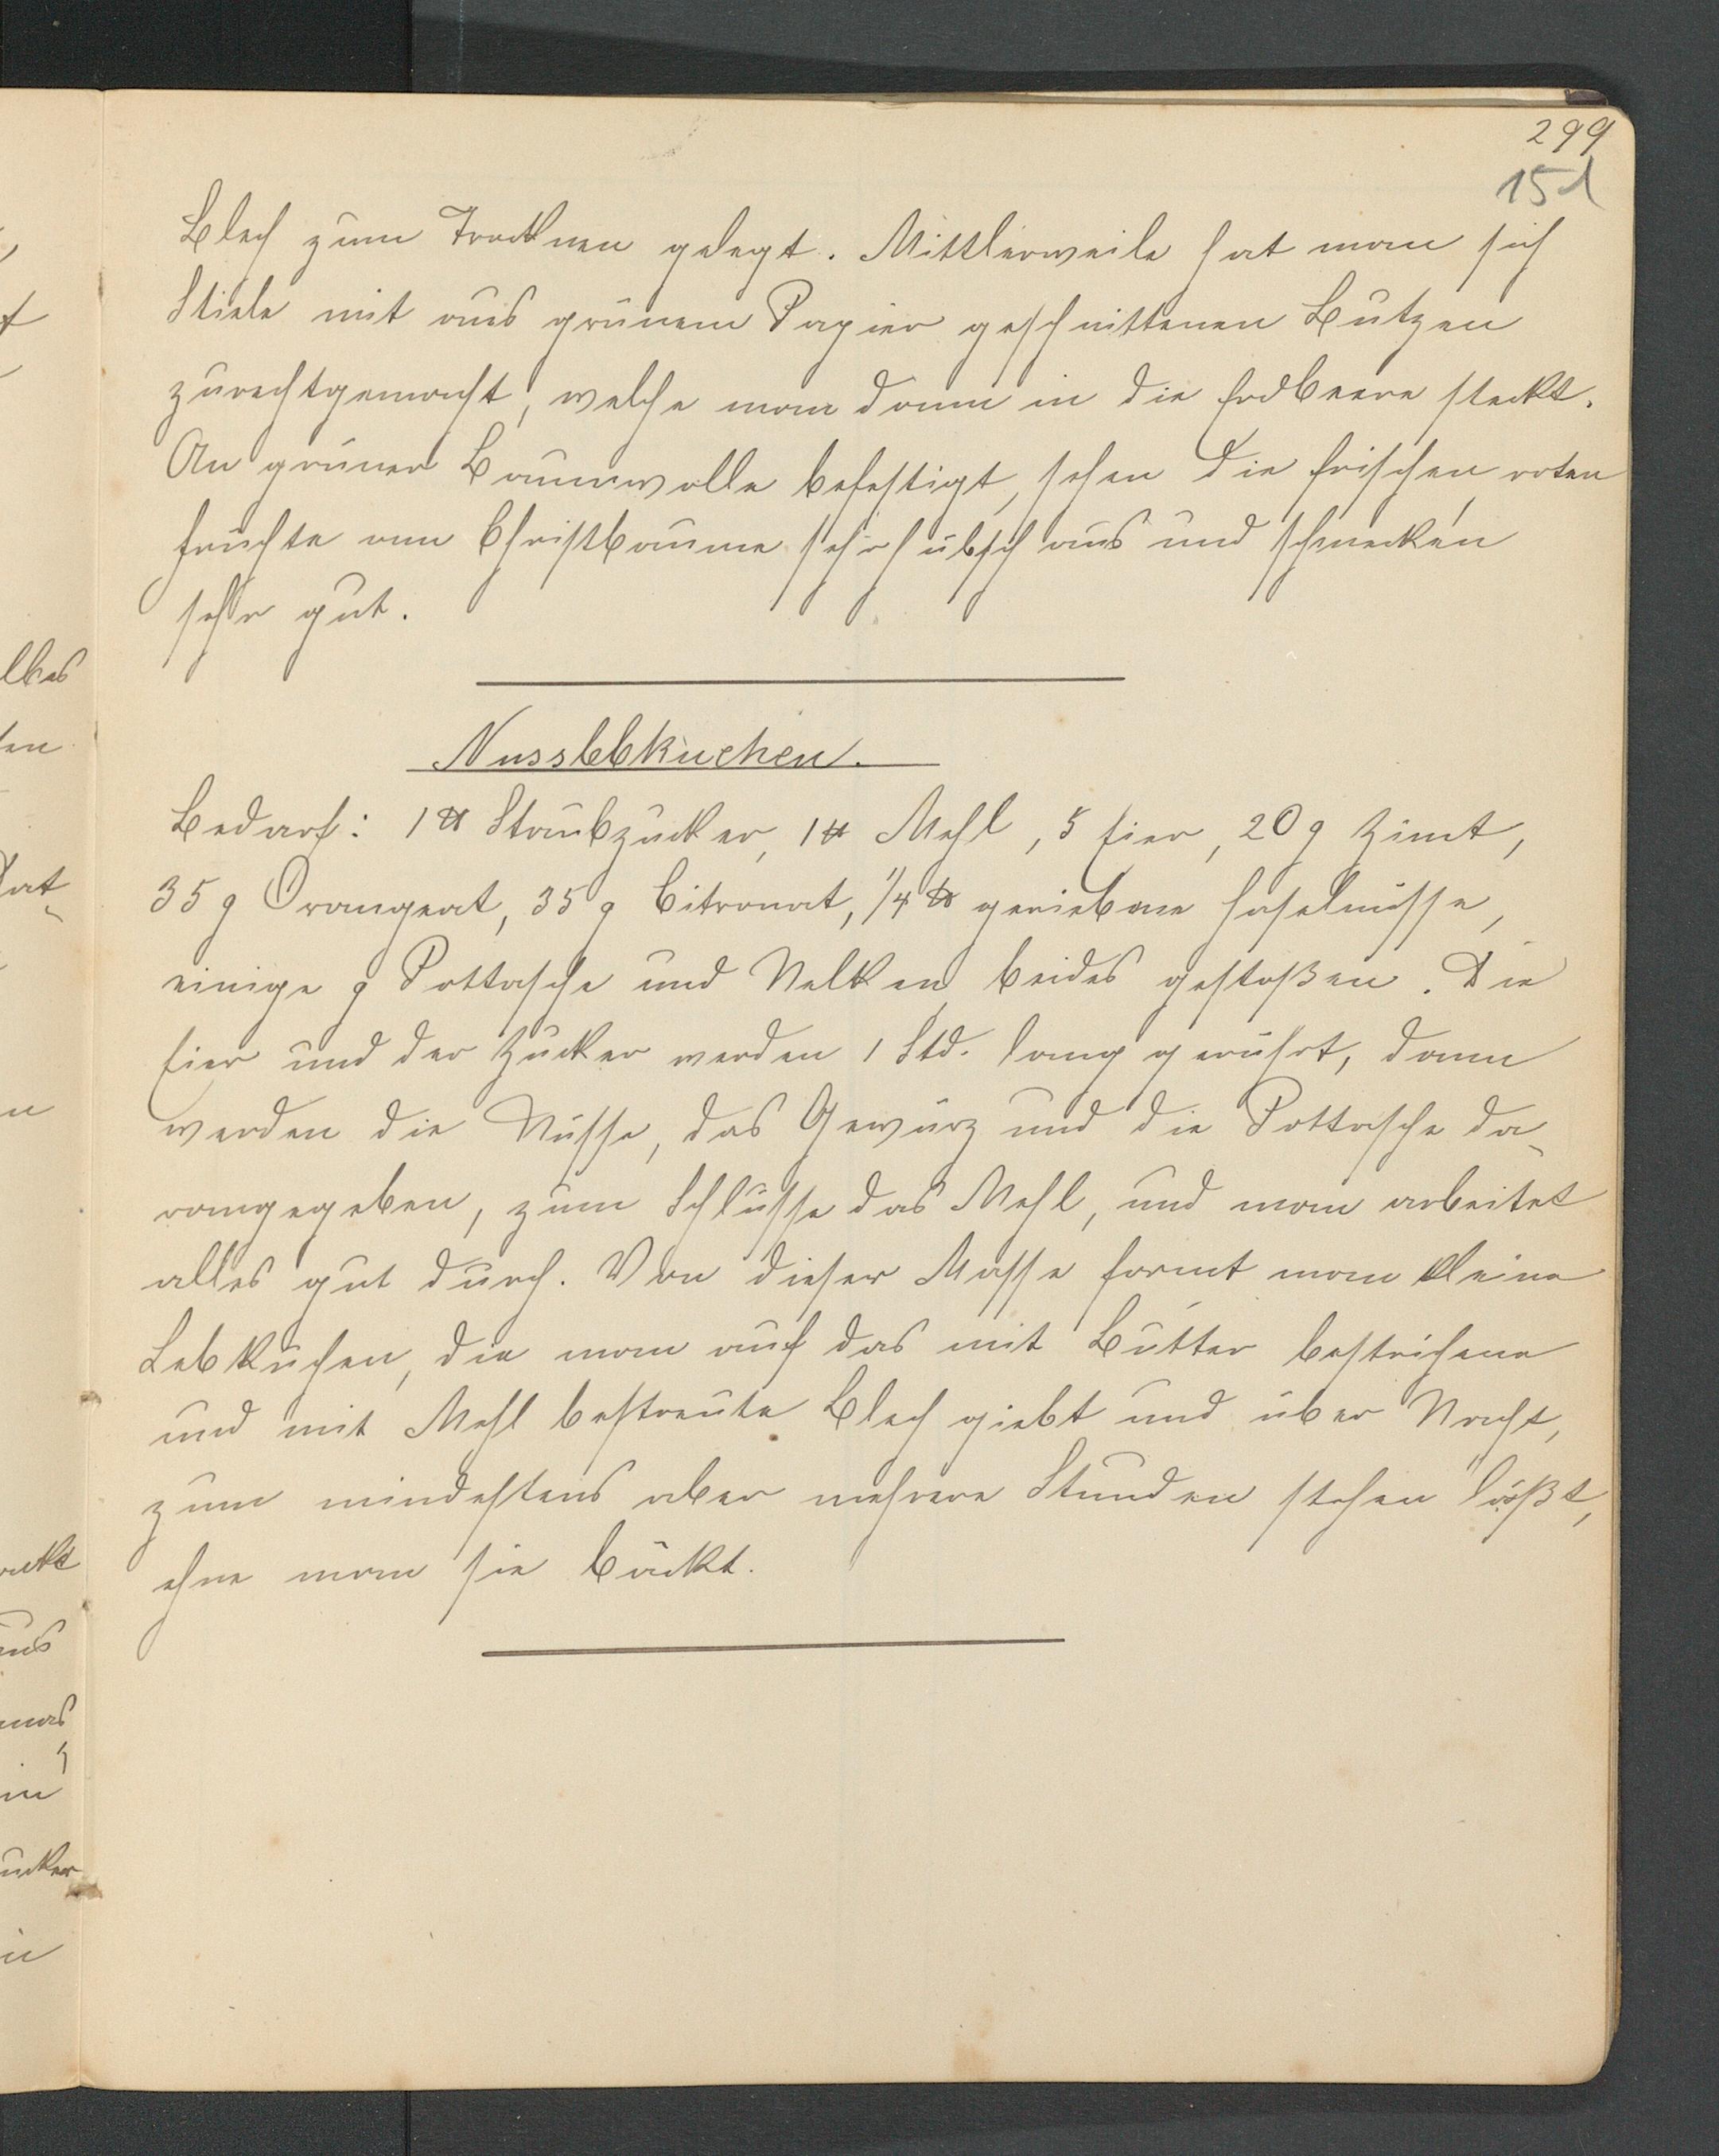 299
151
Blech zum Trocknen gelegt. Mittlerweile hat man sich
Stiele mit aus grünem Papier geschnittenen Butzen
zurechtgemacht, welche man dann in die Erdbeere steckt.
An grüner Baumwolle befestigt, sehen die frischen roten
Früchte am Christbaume sehr hübsch aus und schmecken
sehr gut.
Nusslebkuchen.
Bedarf: 1 ℔ Staubzucker, 1 ℔ Mehl, 5 Eier, 20 g Zimt,
35 g Orangeat, 35 g Citronat, 1/4 ℔ geriebene Haselnüsse,
einige g Pottasche und Nelken, beides gestoßen. Die
Eier und der Zucker werden 1 Std. lang gerührt, dann
werden die Nüsse, das Gewürz und die Pottasche da-
rangegeben, zum Schlusse das Mehl, und man arbeitet
alles gut durch. Von dieser Masse formt man kleine
Lebkuchen, die man auf das mit Butter bestrichene
und mit Mehl bestreute Blech giebt und über Nacht,
zum mindestens aber mehrere Stunden stehen läßt,
ehne man sie bäckt.